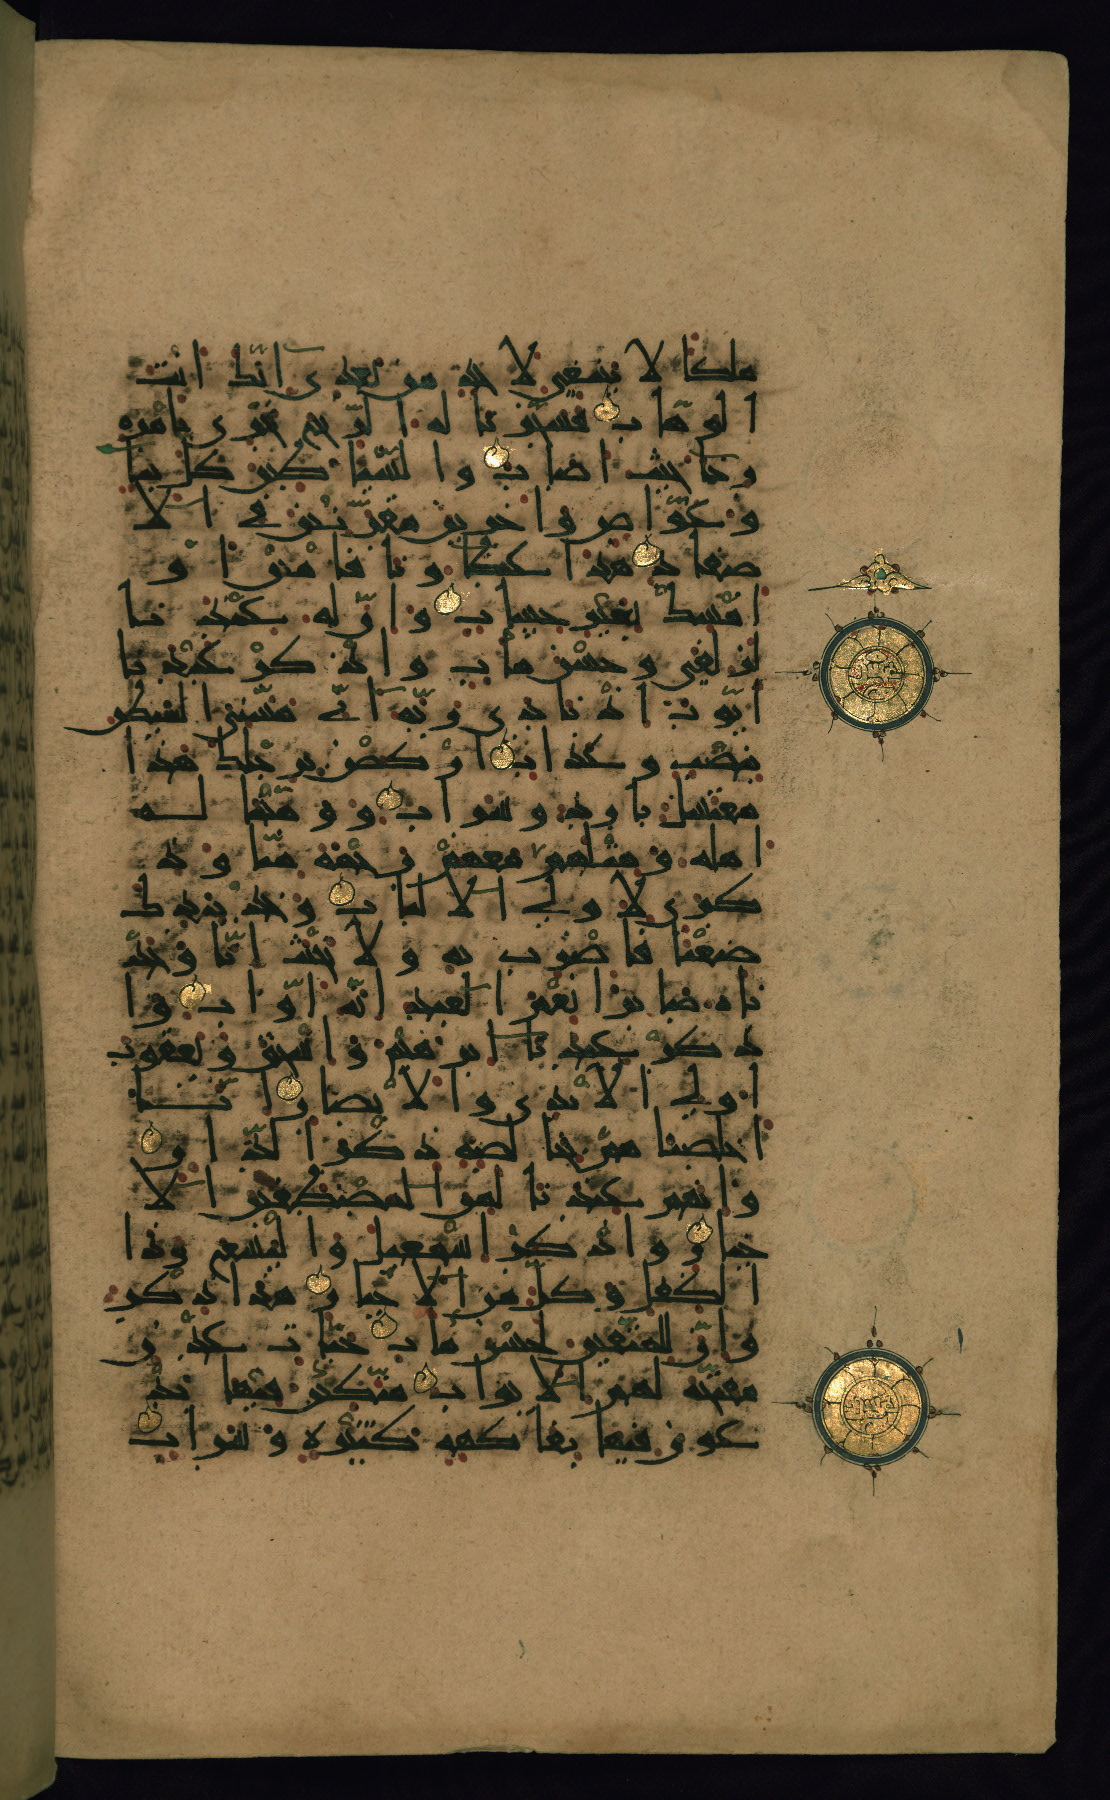 ملكا لا ينبغي لاحد من بعدي انك انت
الوهاب فسخرنا له الريح تجري بامره
رخا حيث اصاب والشيطين كل بنا
وغواص واخرين مقرنين في الا
صفاد هذا عطاونا فامنن او
امسك بغير حساب وان له عندنا
لزلفى وحسن ماب واذكر عبدنا
ايوب اذ نادى ربه اني مسني الشيطن
بنصب وعذاب اركض برجلك هذا
مغتسل بارد وشراب ووهبنا له
اهله ومثلهم معهم رحمة منا وذ
كرى لاولي الالباب وخذ بيدك
ضغثا فاضرب به ولا تحنث انا وجد
ناه صابرا نعم العبد انه اواب وا
ذكر عبدنا ابرهيم واسحق ويعقوب
اولي الايدي والابصار انا
اخلصنهم بخالصة ذكرى الدار
وانهم عندنا لمن المصطفين الا
خيار واذكر اسمعيل واليسع وذا
الكفل وكل من الاخيار هذا ذكر
وان للمتقين لحسن ماب جنات عدن
مفتحة لهم الابواب متكين فيها يد
عون فيها بفاكهة كثيرة وشراب